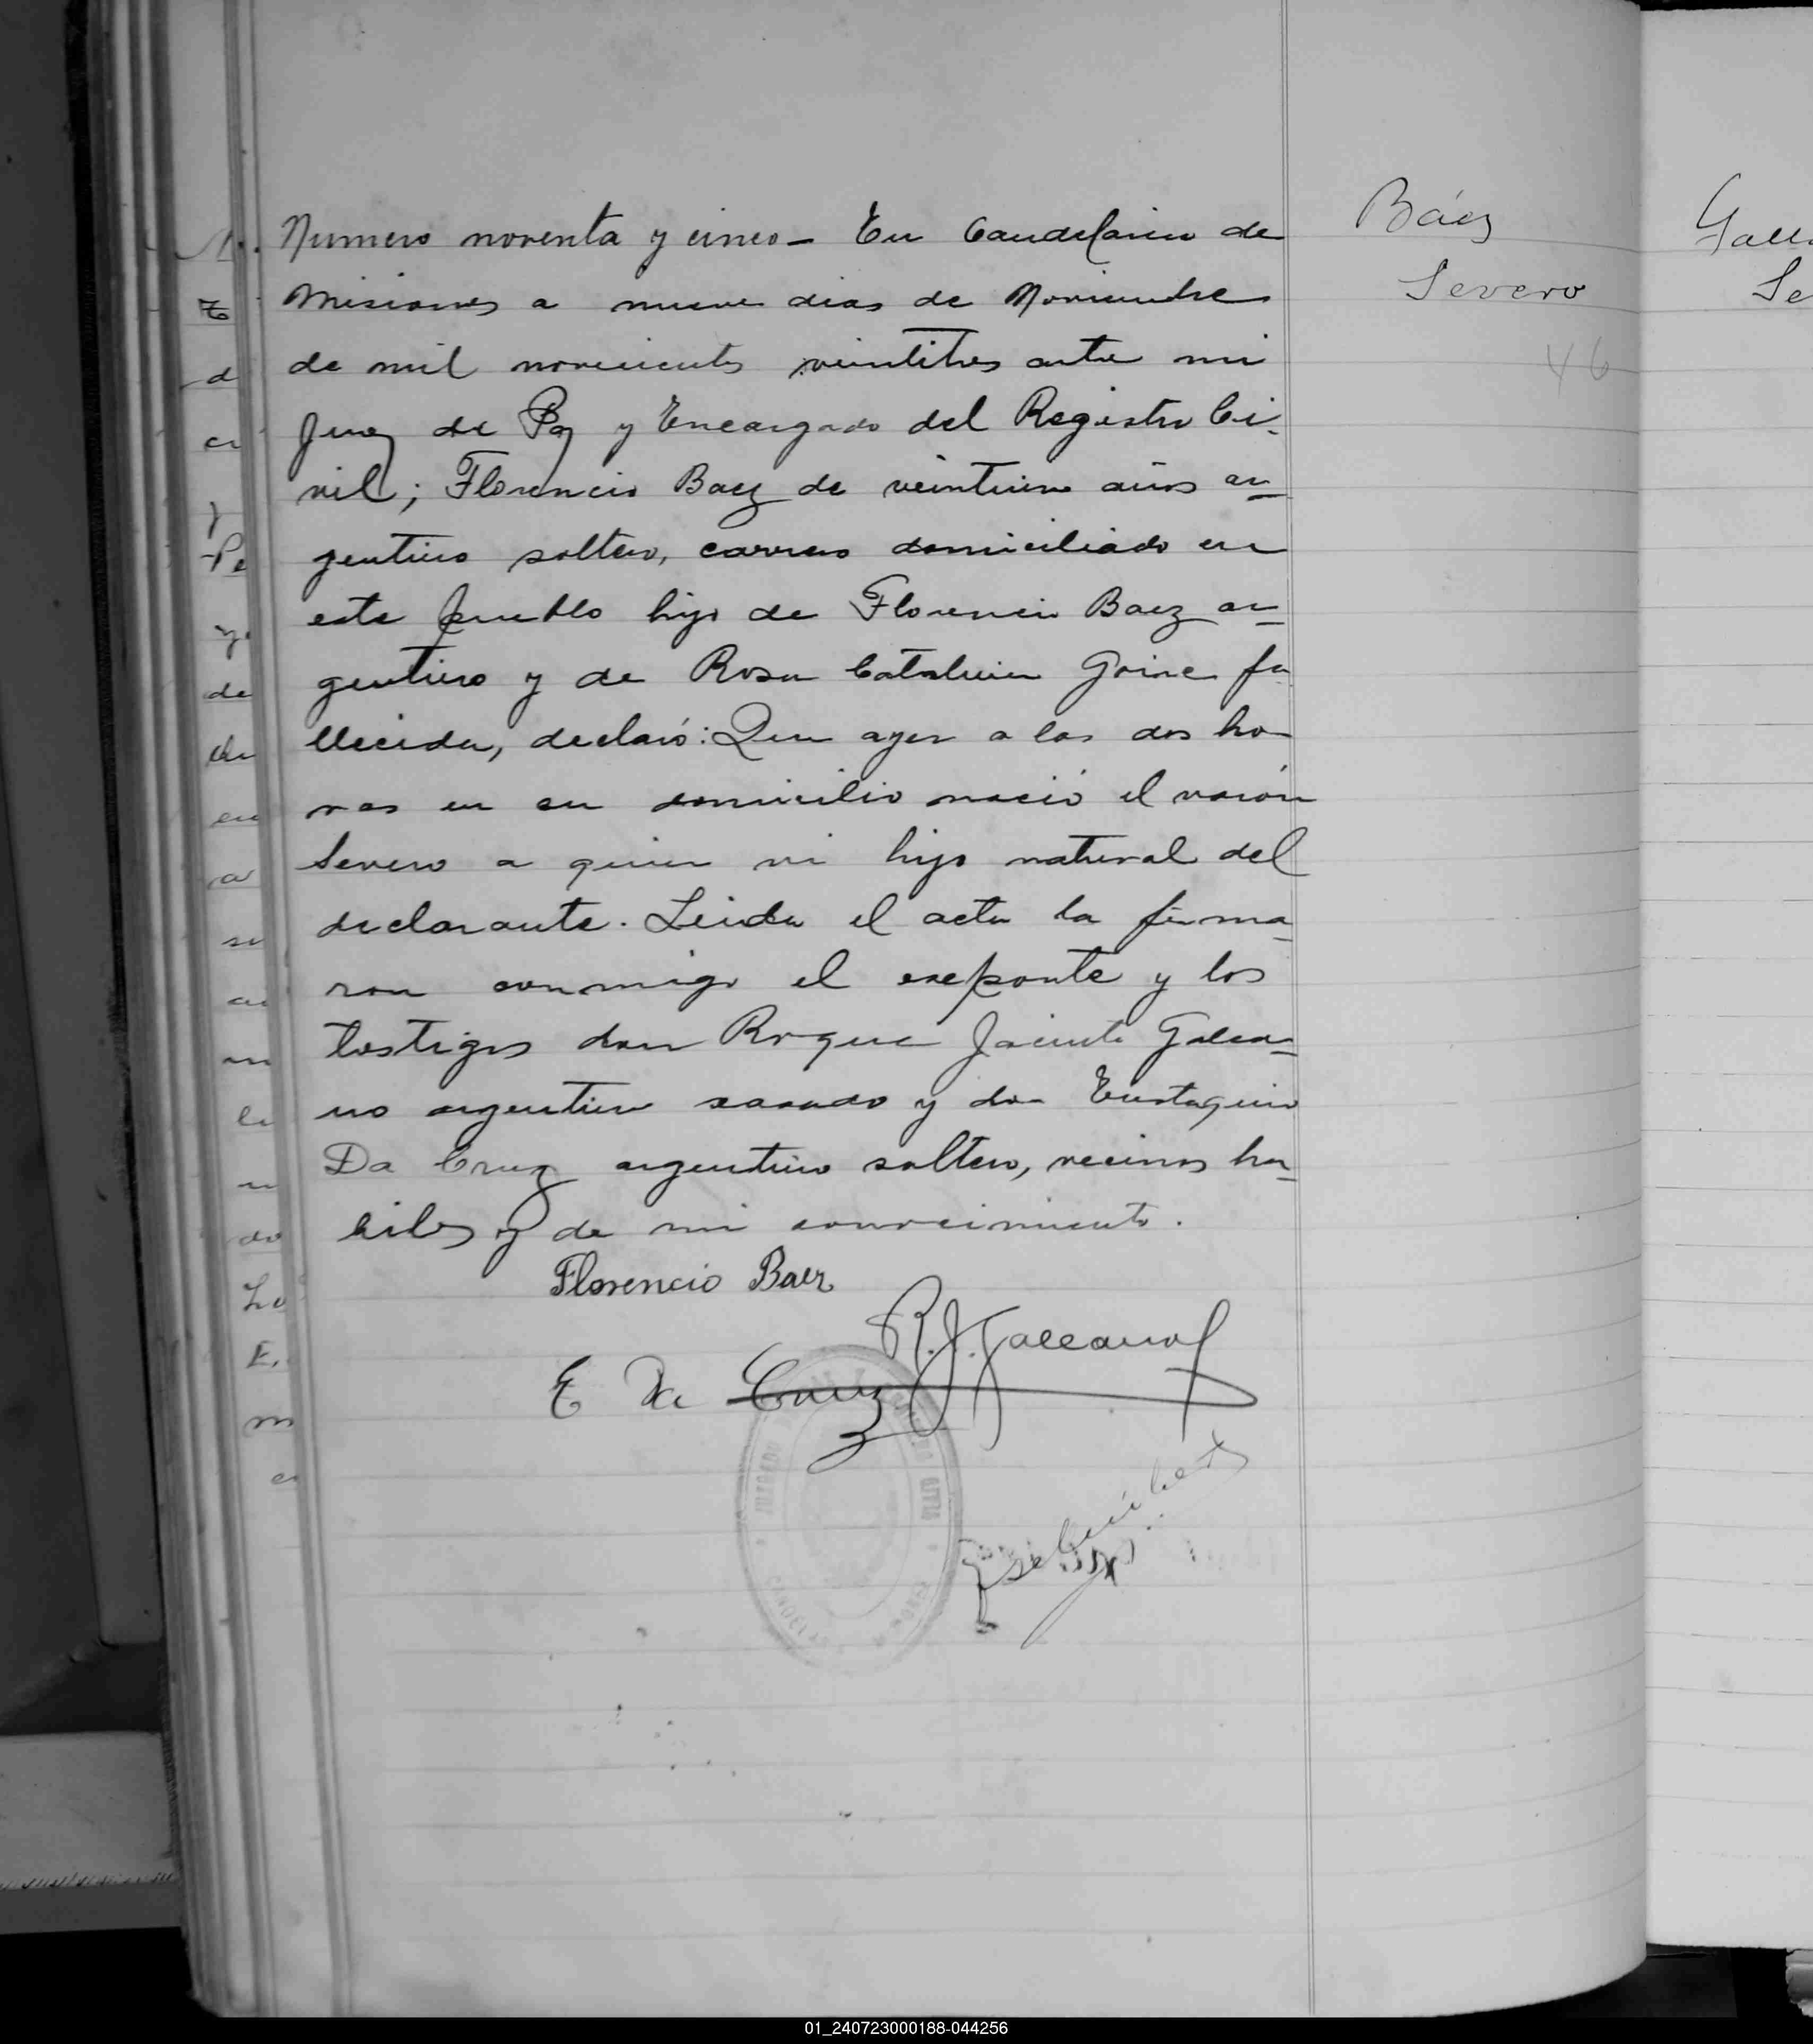 Numero noventa y cinco - En Candelaria de
Misiones a nueve dias de Noviembre
de mil novecientos veintitres ante mi
Juez de Paz y Encargado del Registro Ci-
vil; Florencio Baez de veintiun años ar-
gentino soltero, carrero domiciliado en
este pueblo hijo de Florencio Baez ar-
gentino y de Rosa Catalina fa
llecida, declaró: Que ayer a las dos ho-
ras en su domicilio nació el varón
Severo a quien vi hijo natural del
declarante. Leida el acta la firma-
ron conmigo el exponte y los
testigos don Roque Jacinto Galea-
no argentino casado y don Eustaquio
Da Cruz argentino soltero, vecinos ha-
biles y de mi conocimiento.
Florencio Baez
R. J. Galeano
E Da Cruz
Báez
Severo
46
01_240723000188-044256